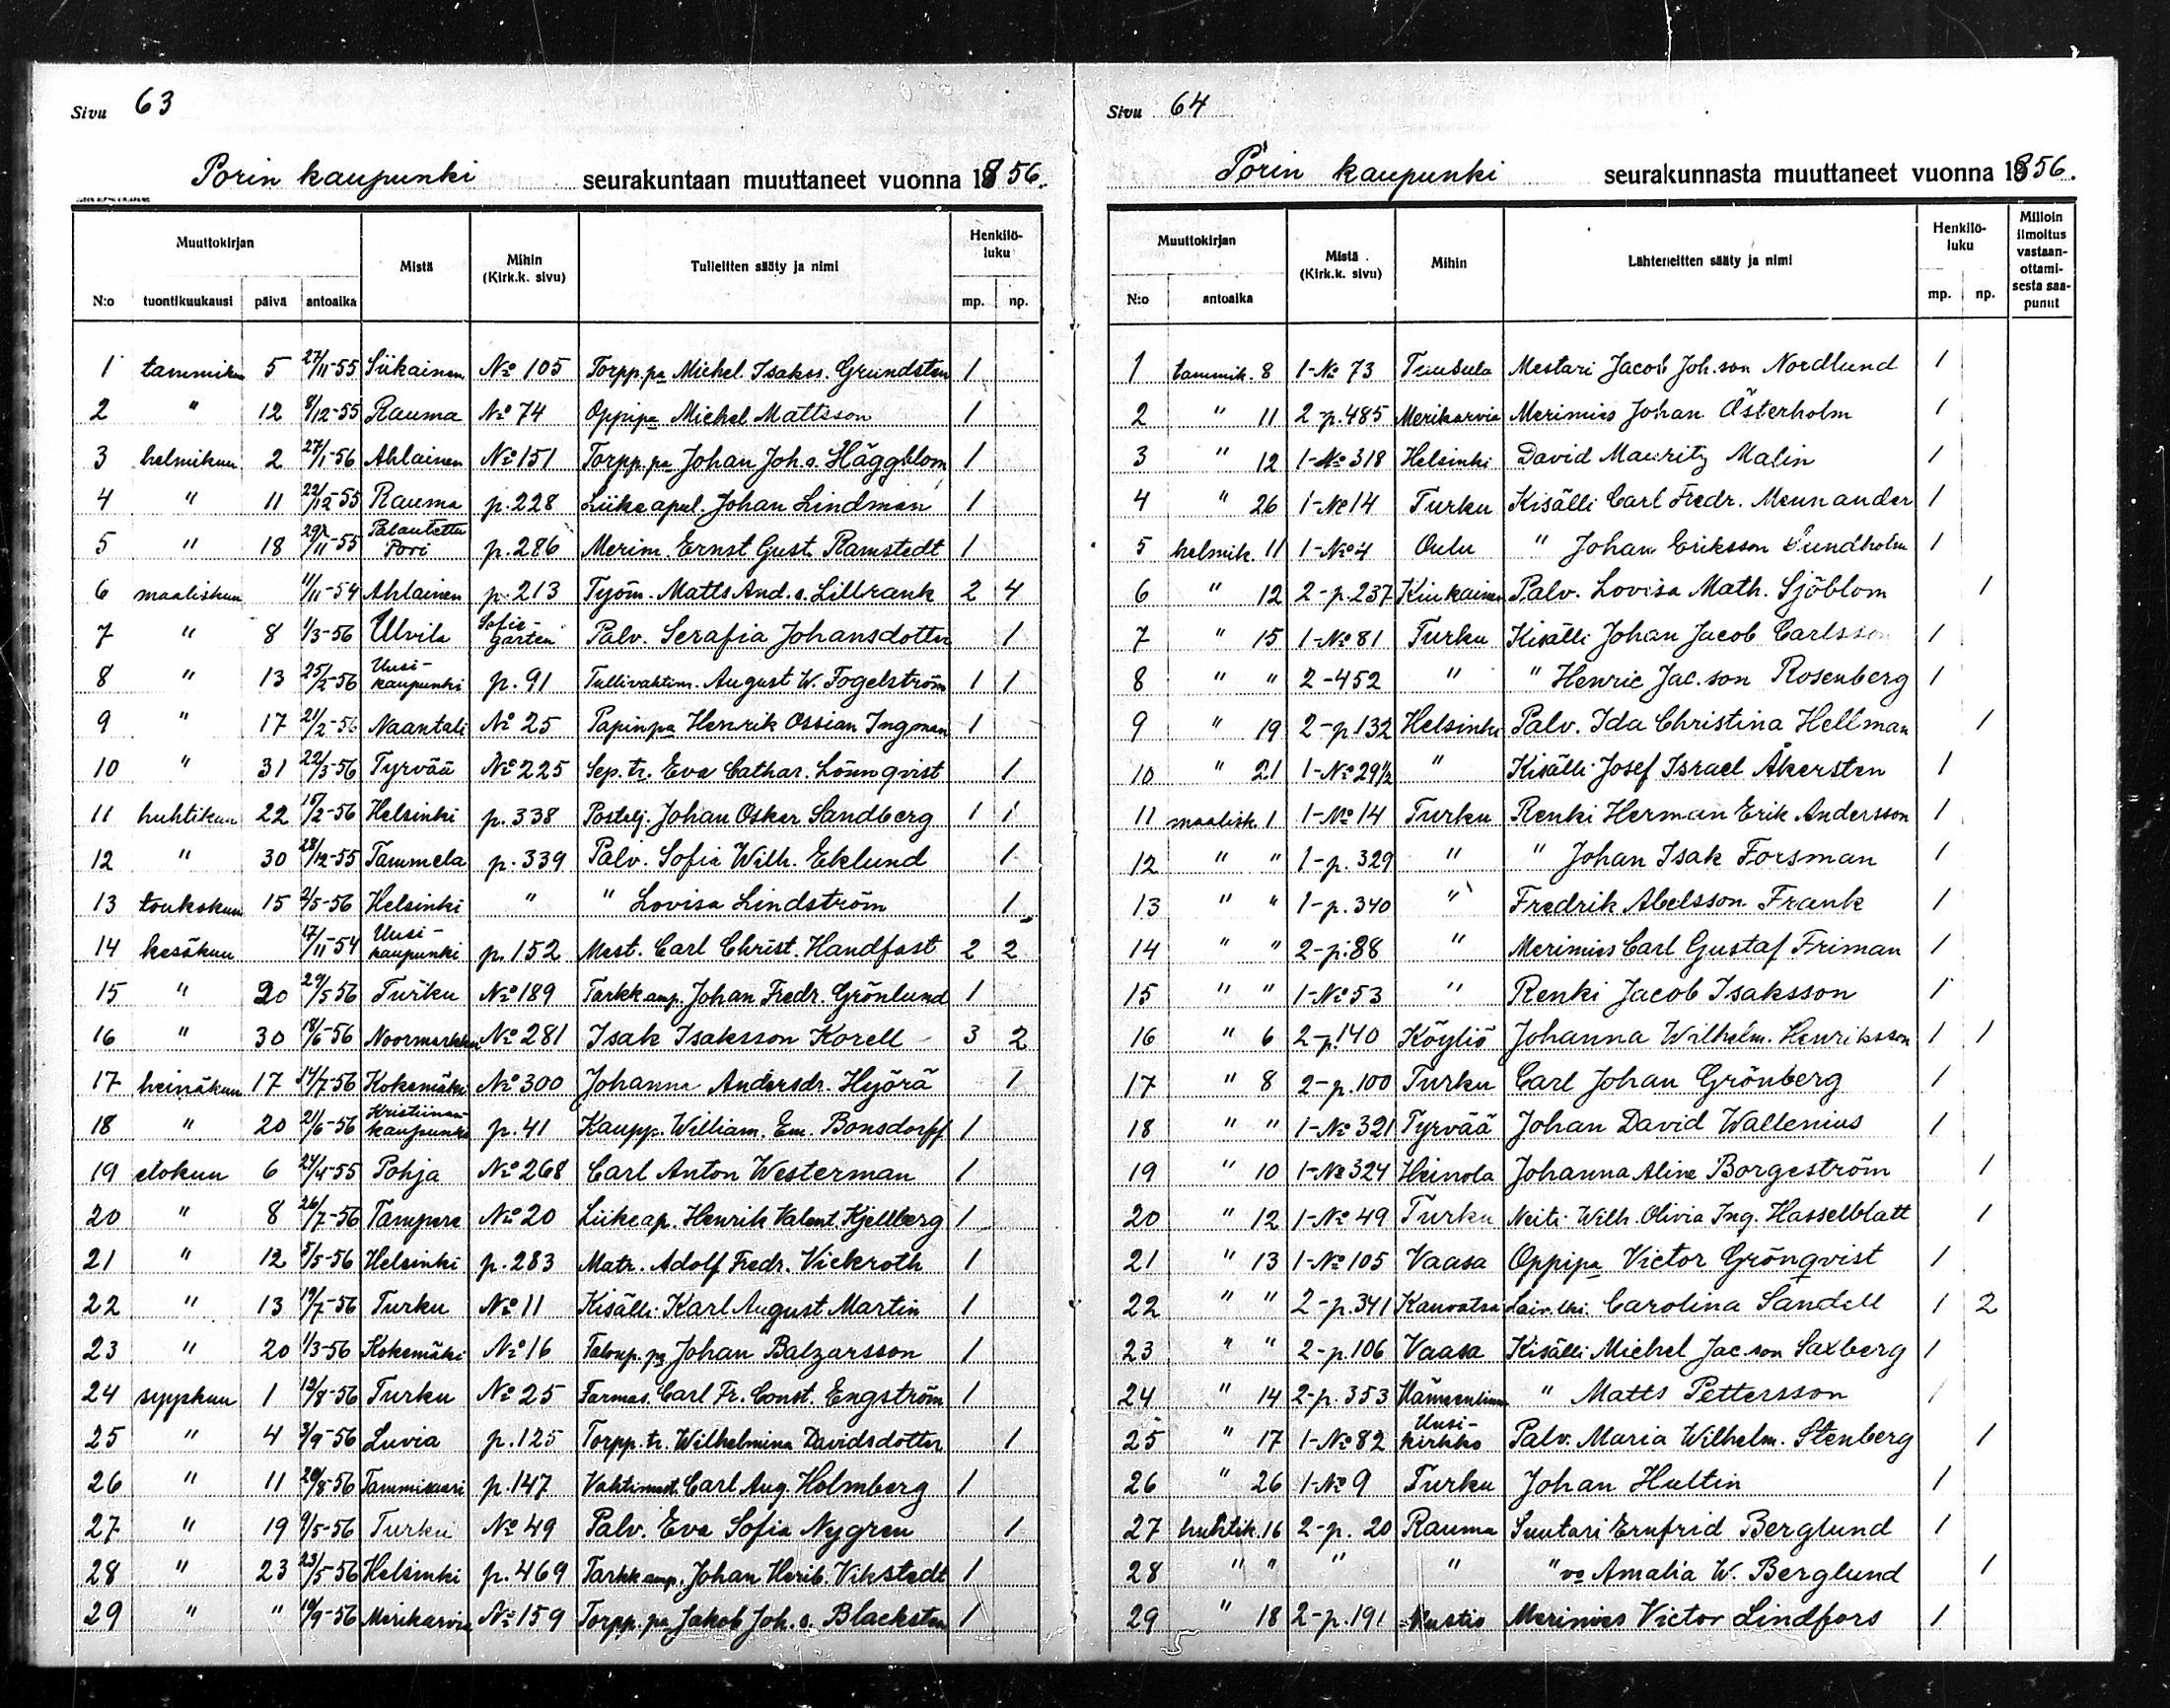 Sivu 63
Porin kaupunki seurakuntaan muuttaneet vuonna 1856.
Muuttokirjan Mistä Mihin (Kirk.k. sivu) Tulleitten sääty ja nimi Henkilöluku
N:o tuontikuukausi päivä antoaika mp. np.
1 tammikuu 5 27/11-55 Siikainen No 105 Torpp.pa Michel Isakss. Grundsten 1
2 " 12 8/12-55 Rauma No 74 Oppipa Michel Mattsson 1
3 helmikuu 2 27/1-56 Ahlainen No 151 Torpp.pa Johan Joh.s. Häggblom 1
4 " 11 22/12-55 Rauma p.228 Liikeapul. Johan Lindman 1
5 " 18 29/11-55 Palautettu Pori p.286 Merim. Ernst Gust. Ramstedt 1
6 maaliskuu 11/11-54 Ahlainen p.213 Työm. Matts And.s. Lillrank 2 4
7 " 8 1/3-56 Ulvila Sofiegarten Palv. Serafia Johansdotter 1
8 " 13 25/2-56 Uusikaupunki p.91 Tullivahtim. August W. Fogelström 1 1
9 " 17 21/2-56 Naantali No 25 Papinpa Henrik Ossian Ingman 1
10 " 31 22/3-56 Tyrvää No 225 Sep. tr. Eva Cathar. Lönnqvist 1
11 huhtikuu 22 15/2-56 Helsinki p.338 Postelj. Johan Oskar Sandberg 1 1
12 " 30 28/12-55 Tammela p.339 Palv. Sofia Wilh. Eklund 1
13 toukokuu 15 2/5-56 Helsinki " " Lovisa Lindström 1
14 kesäkuu 17/11-54 Uusikaupunki p.152 Mest. Carl Christ. Handfast 2 2
15 " 20 29/5 56 Turku No 189 Tarkk amp. Johan Fredr. Grönlund 1
16 " 30 18/6-56 Noormarkku No 281 Isak Isaksson Korell 3 2
17 heinäkuu 17 14/7-56 Kokemäki No 300 Johanna Andersdr. Hyörä 1
18 " 20 21/6-56 Kristiinankaupunki p.41 Kaupp. William. Em. Bonsdorff 1
19 elokuu 6 24/4-55 Pohja No 268 Carl Anton Westerman 1
20 " 8 26/7-56 Tampere No 20 Liikeap. Henrik Valent. Kjellberg 1
21 " 12 5/5-56 Helsinki p.283 Matr. Adolf Fredr. Vickroth 1
22 " 13 19/7-56 Turku No 11 Kisälli Karl August Martin 1
23 " 20 1/3-56 Kokemäki No 16 Taloup. pa Johan Balzarsson 1
24 syyskuu 1 12/8-56 Turku No 25 Farmas. Carl Fr. Const. Engström 1
25 " 4 3/9-56 Luvia p.125 Torpp. tr. Wilhelmina Davidsdotter 1
26 " 11 20/8-56 Tammisaari p.147 Vahtimest. Carl Aug. Holmberg 1
27 " 19 9/5-56 Turku No 49 Palv. Eva Sofia Nygren 1
28 " 23 23/5-56 Helsinki p.469 Tarkk amp. Johan Herib. Vikstedt 1
29 " " 10/9-56 Merikarvia No 159 Torpp. pa Jakob Joh.s. Blacksten 1
Sivu 64
Porin kaupunki seurakunnasta muuttaneet vuonna 1856.
Muuttokirjan Mistä (Kirk.k. sivu) Mihin Lähteneitten sääty ja nimi Henkilöluku Milloin ilmoitus vastaanottamisesta saapunut
N:o antoaika mp. np.
1 tammik. 8 1-No 73 Tuusula Mestari Jacob Joh.son Nordlund 1
2 " 11 2-p.485 Merikarvia Merimies Johan Österholm 1
3 " 12 1-No 318 Helsinki David Mauritz Malin 1
4 " 26 1-No 14 Turku Kisälli Carl Fredr. Mennander 1
5 helmik. 11 1-No 4 Oulu " Johan Eriksson Sundholm 1
6 " 12 2-p.237 Kiukainen Palv. Lovisa Math. Sjöblom 1
7 " 15 1-No 81 Turku Kisälli Johan Jacob Carlsson 1
8 " " 2-452 " " Henric Jac.son Rosenberg 1
9 " 19 2-p.132 Helsinki Palv. Ida Christina Hellman 1
10 " 21 1-No 29 1/2 " Kisälli Josef Israel Åkersten 1
11 maalisk. 1 1-No 14 Turku Renki Herman Erik Andersson 1
12 " " 1-p.329 " " Johan Isak Forsman 1
13 " " 1-p.340 " Fredrik Abelsson Frank 1
14 " " 2-p.88 " Merimies Carl Gustaf Friman 1
15 " " 1-No 53 " Renki Jacob Isaksson 1
16 " 6 2-p.140 Köyliö Johanna Wilhelm. Henriksson 1 1
17 " 8 2-p.100 Turku Carl Johan Grönberg 1
18 " " 1-No 321 Tyrvää Johan David Wallenius 1
19 " 10 1-No 324 Heinola Johanna Alina Borgeström 1
20 " 12 1-No 49 Turku Neiti Wilh. Olivia Ing. Hasselblatt 1
21 " 13 1-No 105 Vaasa Oppipa Victor Grönqvist 1
22 " " 2-p.341 Kauvatsa Laiv. lki. Carolina Sandell 1 2
23 " " 2-p.106 Vaasa Kisälli Michel Jac.son Saxberg 1
24 " 14 2-p.353 Hämeenlinna " Matts Pettersson 1
25 " 17 1-No 82 Uusikirkko Palv. Maria Wilhelm. Stenberg 1
26 " 26 1-No 9 Turku Johan Hultin 1
27 huhtik. 16 2-p. 20 Rauma Suutari Ernfrid Berglund 1
28 " " " " " va Amalia W. Berglund 1
29 " 18 2-p.191 Mustio Merimies Victor Lindfors 1